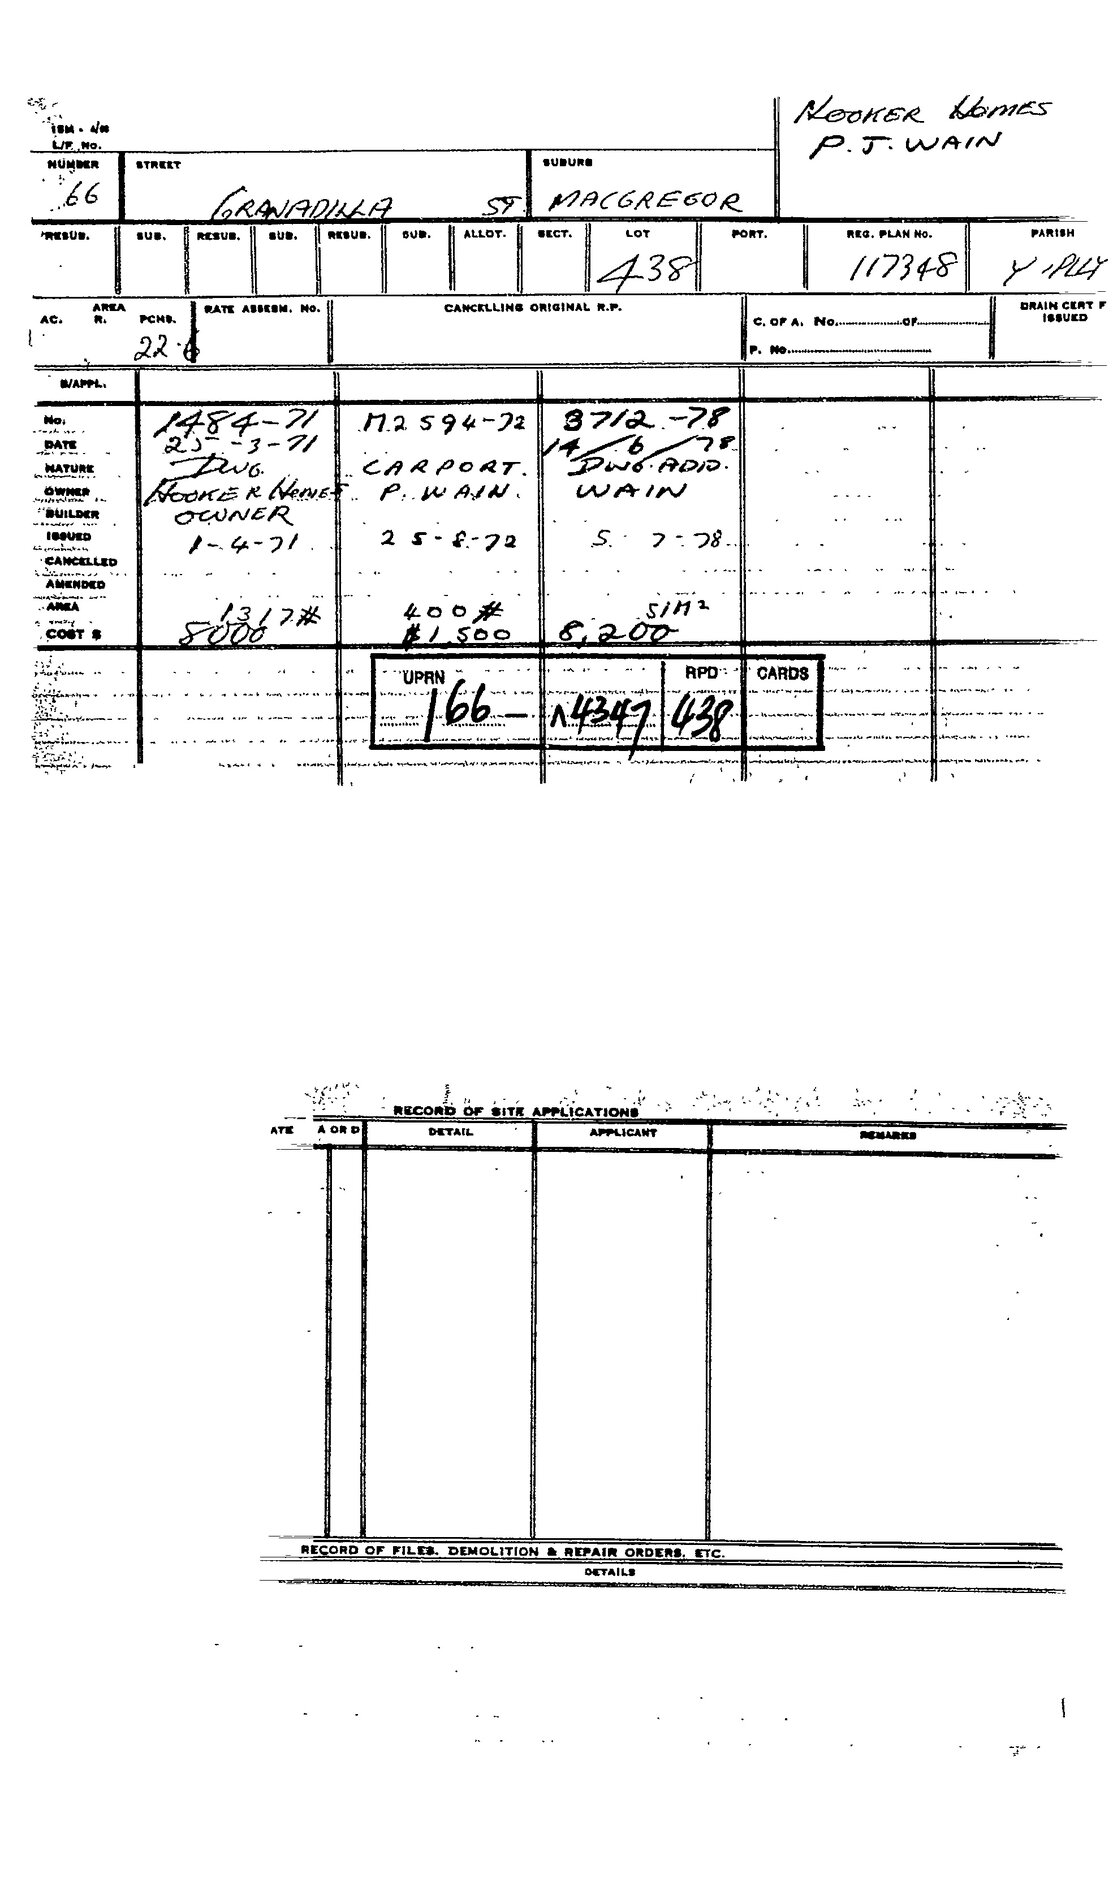 HOOKER HOMES
P. J. WAIN
L/F. No.
NUMBER STREET SUBURB
66 GRANADILLA ST MACGREGOR
RESUB. SUB. RESUB. SUB. RESUB. SUB. ALLOT. SECT. LOT PORT. REG. PLAN No. PARISH
438 117348
AREA RATE ASSESM. No. CANCELLING ORIGINAL R.P. DRAIN CERT F
AC. R. PCHS. C. OF A. No. OF ISSUED
22.6 P. No.
B/APPL.
No. 1484-71 M2594-72 3712-78
DATE 25-3-71 14/6/78
NATURE DWG. CARPORT. DWG. ADD.
OWNER HOOKER HOMES P. WAIN. WAIN
BUILDER OWNER
ISSUED 1-4-71 25-8-72 5-7-78
CANCELLED
AMENDED
AREA 1317# 400# 51M2
COST $ 8000 $1500 8,200
UPRN RPD CARDS
166 - 4347 438
RECORD OF SITE APPLICATIONS
ATE A OR D DETAIL APPLICANT REMARKS
RECORD OF FILES, DEMOLITION & REPAIR ORDERS, ETC.
DETAILS